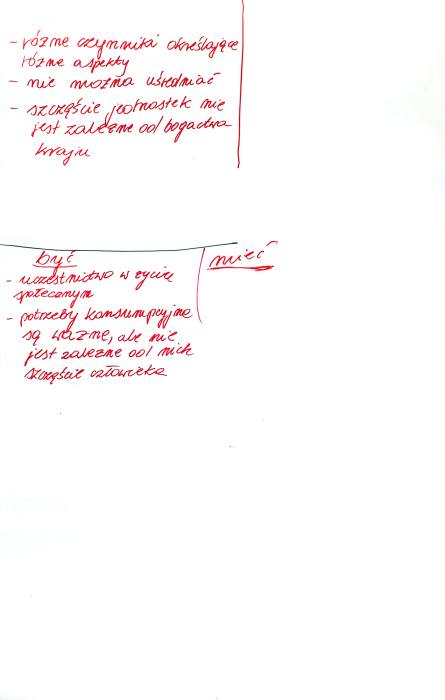 - różne czynniki określające
różne aspekty
- nie można uśredniać
- szczęście jednostek nie
jest zależne od bogactwa
kraju
być
mieć
- uczestnictwo w życiu
społecznym
- potrzeby konsumpcyjne
są ważne, ale nie
jest zależne od nich
szczęście człowieka